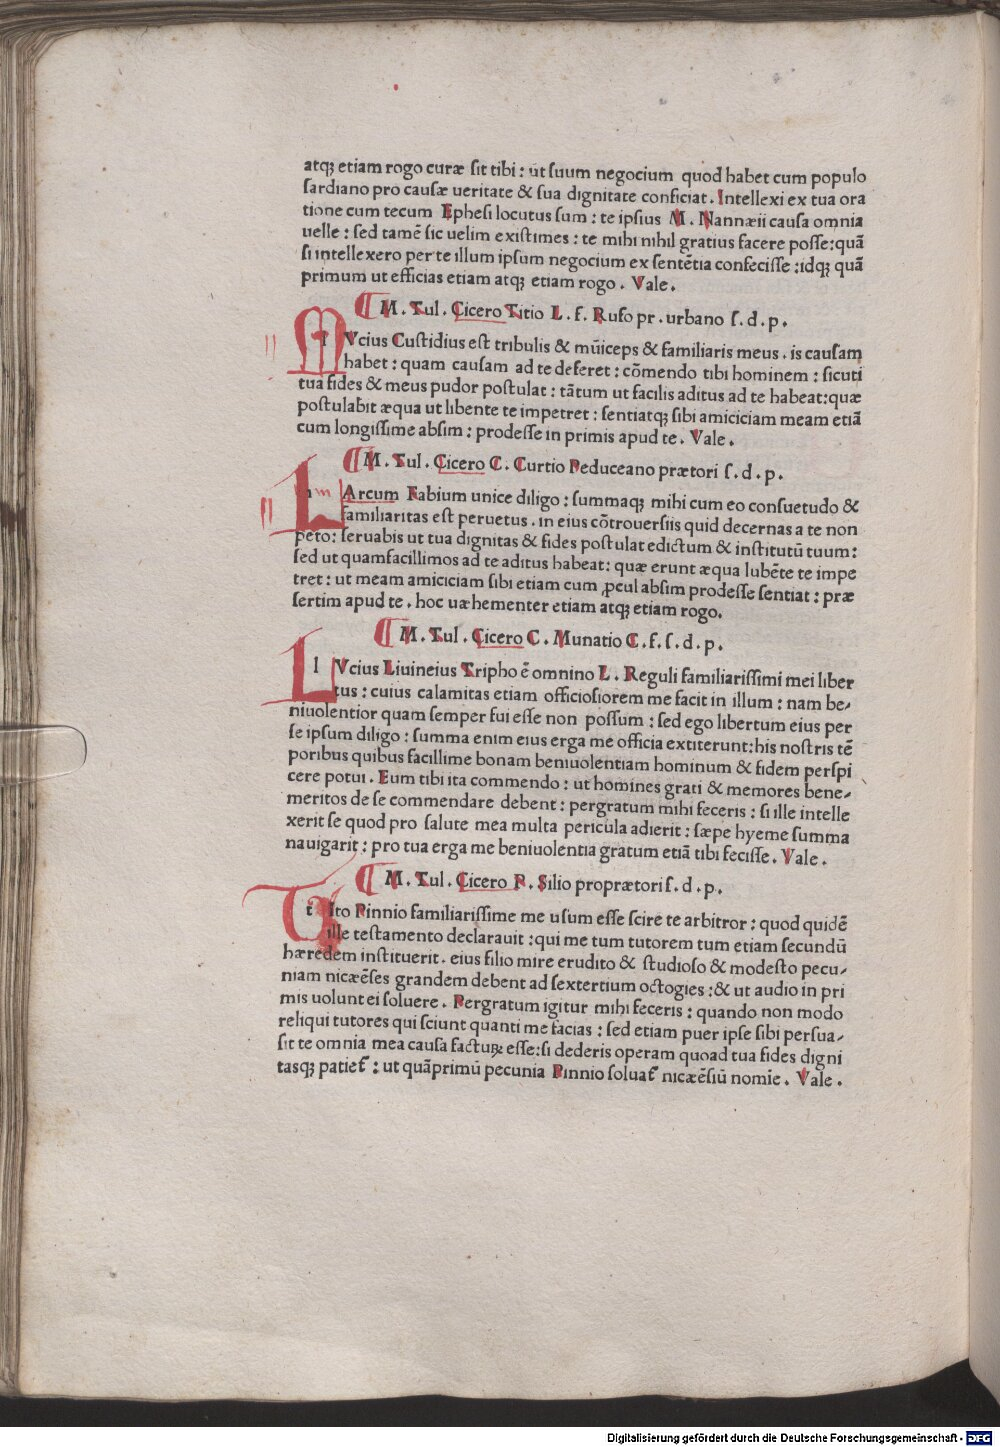 atq; etiam rogo curæ ſit tibi : ut ſuum negocium quod habet cum populo
ſardiano pro cauſæ ueritate & ſua dignitate conficiat . Intellexi ex tua ora
tione cum tecum Epheſi locutus ſum : te ipſius M . Nannæii cauſa omnia
uelle : ſed tamē ſic uelim exiſtimes : te mihi nihil gratius facere poſſe:quā
ſi intellexero per te illum ipſum negocium ex ſentētia confeciſſe :idq; quā
primum ut efficias etiam atq; etiam rogo . Vale .
M . Tul . Cicero Titio L . f . Rufo pr . urbano ſ . d . p .
l Vcius Cuſtidius eſt tribulis & mūiceps & familiaris meus . is cauſam
habet : quam cauſam ad te deferet : cōmendo tibi hominem : ſicuti
tua fides & meus pudor poſtulat : tātum ut facilis aditus ad te habeat:quæ
poſtulabit æqua ut libente te impetret : ſentiatq; ſibi amiciciam meam etiā
cum longiſſime abſim : prodeſſe in primis apud te . Vale .
M . Tul . Cicero C . Curtio Peduceano prætori ſ . d . p .
m Arcum Fabium unice diligo : ſummaq; mihi cum eo conſuetudo &
familiaritas eſt peruetus . in eius cōtrouerſiis quid decernas a te non
peto: ſeruabis ut tua dignitas & fides poſtulat edictum & inſtitutū tuum:
ſed ut quamfacillimos ad te aditus habeat: quæ erunt æqua lubēte te impe
tret : ut meam amiciciam ſibi etiam cum ꝓcul abſim prodeſſe ſentiat : præ
ſertim apud te . hoc uæhementer etiam atq; etiam rogo.
M . Tul . Cicero C . Munatio C . f . ſ . d . p .
l Vcius Liuineius Tripho ē omnino L . Reguli familiariſſimi mei liber
tus : cuius calamitas etiam officioſiorem me facit in illum : nam be-
niuolentior quam ſemper fui eſſe non poſſum : ſed ego libertum eius per
ſe ipſum diligo : ſumma enim eius erga me officia extiterunt:his noſtris tē
poribus quibus facillime bonam beniuolentiam hominum & fidem perſpi
cere potui . Eum tibi ita commendo : ut homines grati & memores bene-
meritos de ſe commendare debent : pergratum mihi feceris : ſi ille intelle
xerit ſe quod pro ſalute mea multa pericula adierit : ſæpe hyeme ſumma
nauigarit : pro tua erga me beniuolentia gratum etiā tibi feciſſe . Vale .
M . Tul . Cicero P . Silio proprætori ſ . d . p .
t Ito Pinnio familiariſſime me uſum eſſe ſcire te arbitror : quod quidē
ille teſtamento declarauit : qui me tum tutorem tum etiam ſecundū
hæredem inſtituerit . eius filio mire erudito & ſtudioſo & modeſto pecu-
niam nicæēſes grandem debent ad ſextertium octogies :& ut audio in pri
mis uolunt ei ſoluere . Pergratum igitur mihi feceris : quando non modo
reliqui tutores qui ſciunt quanti me facias : ſed etiam puer ipſe ſibi perſua-
ſit te omnia mea cauſa facturꝝ eſſe:ſi dederis operam quoad tua fides digni
tasq; patiet᷑ : ut quāprimū pecunia Pinnio ſoluat᷑ nicæēſiū nomīe . Vale .
Digitalisierung gefördert durch die Deutsche Forschungsgemeinschaft - DFG